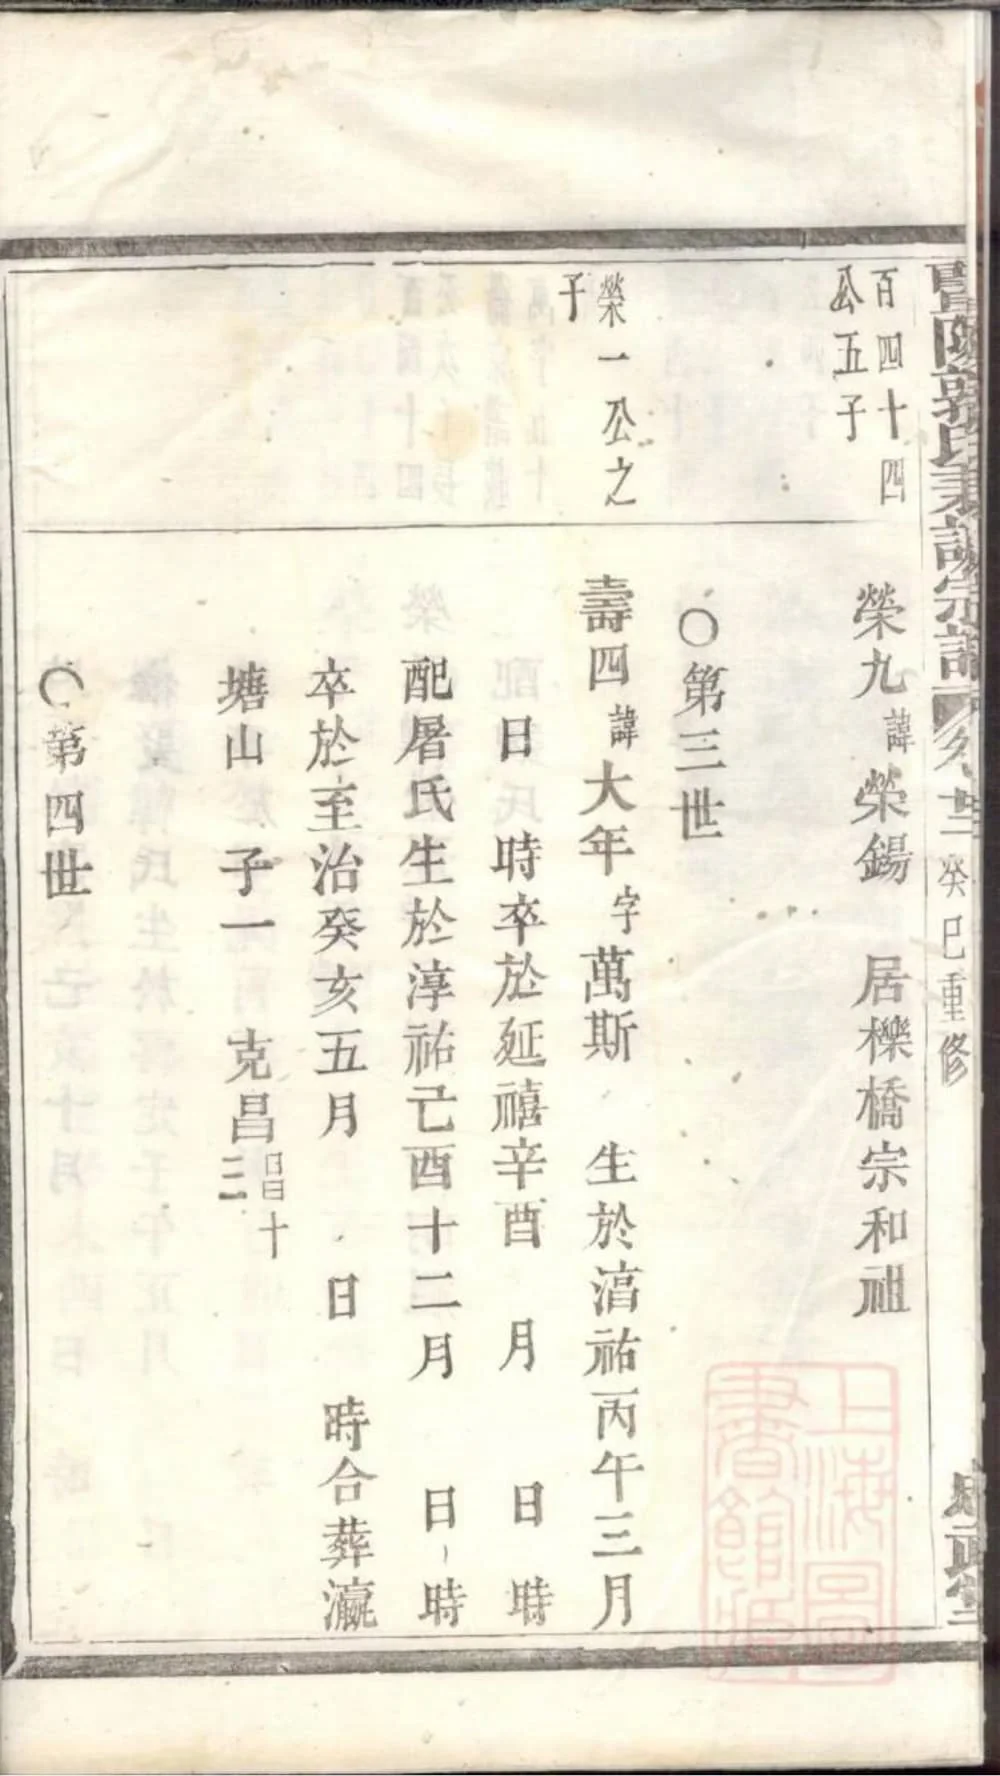 暨陽郭氏
宗譜
癸巳重修
百四十四
公五子
榮九諱榮錫　居櫟橋宗和祖
〇第三世
榮一公之
子
壽四諱大年字萬斯　生於淳祐丙午三月
日　時卒於延禧辛酉　月　日　時
配屠氏生於淳祐己酉十二月　日　時
卒於至治癸亥五月　日　時合葬瀛
塘山　子一　克昌昌十三
〇第四世
上海圖
書館藏